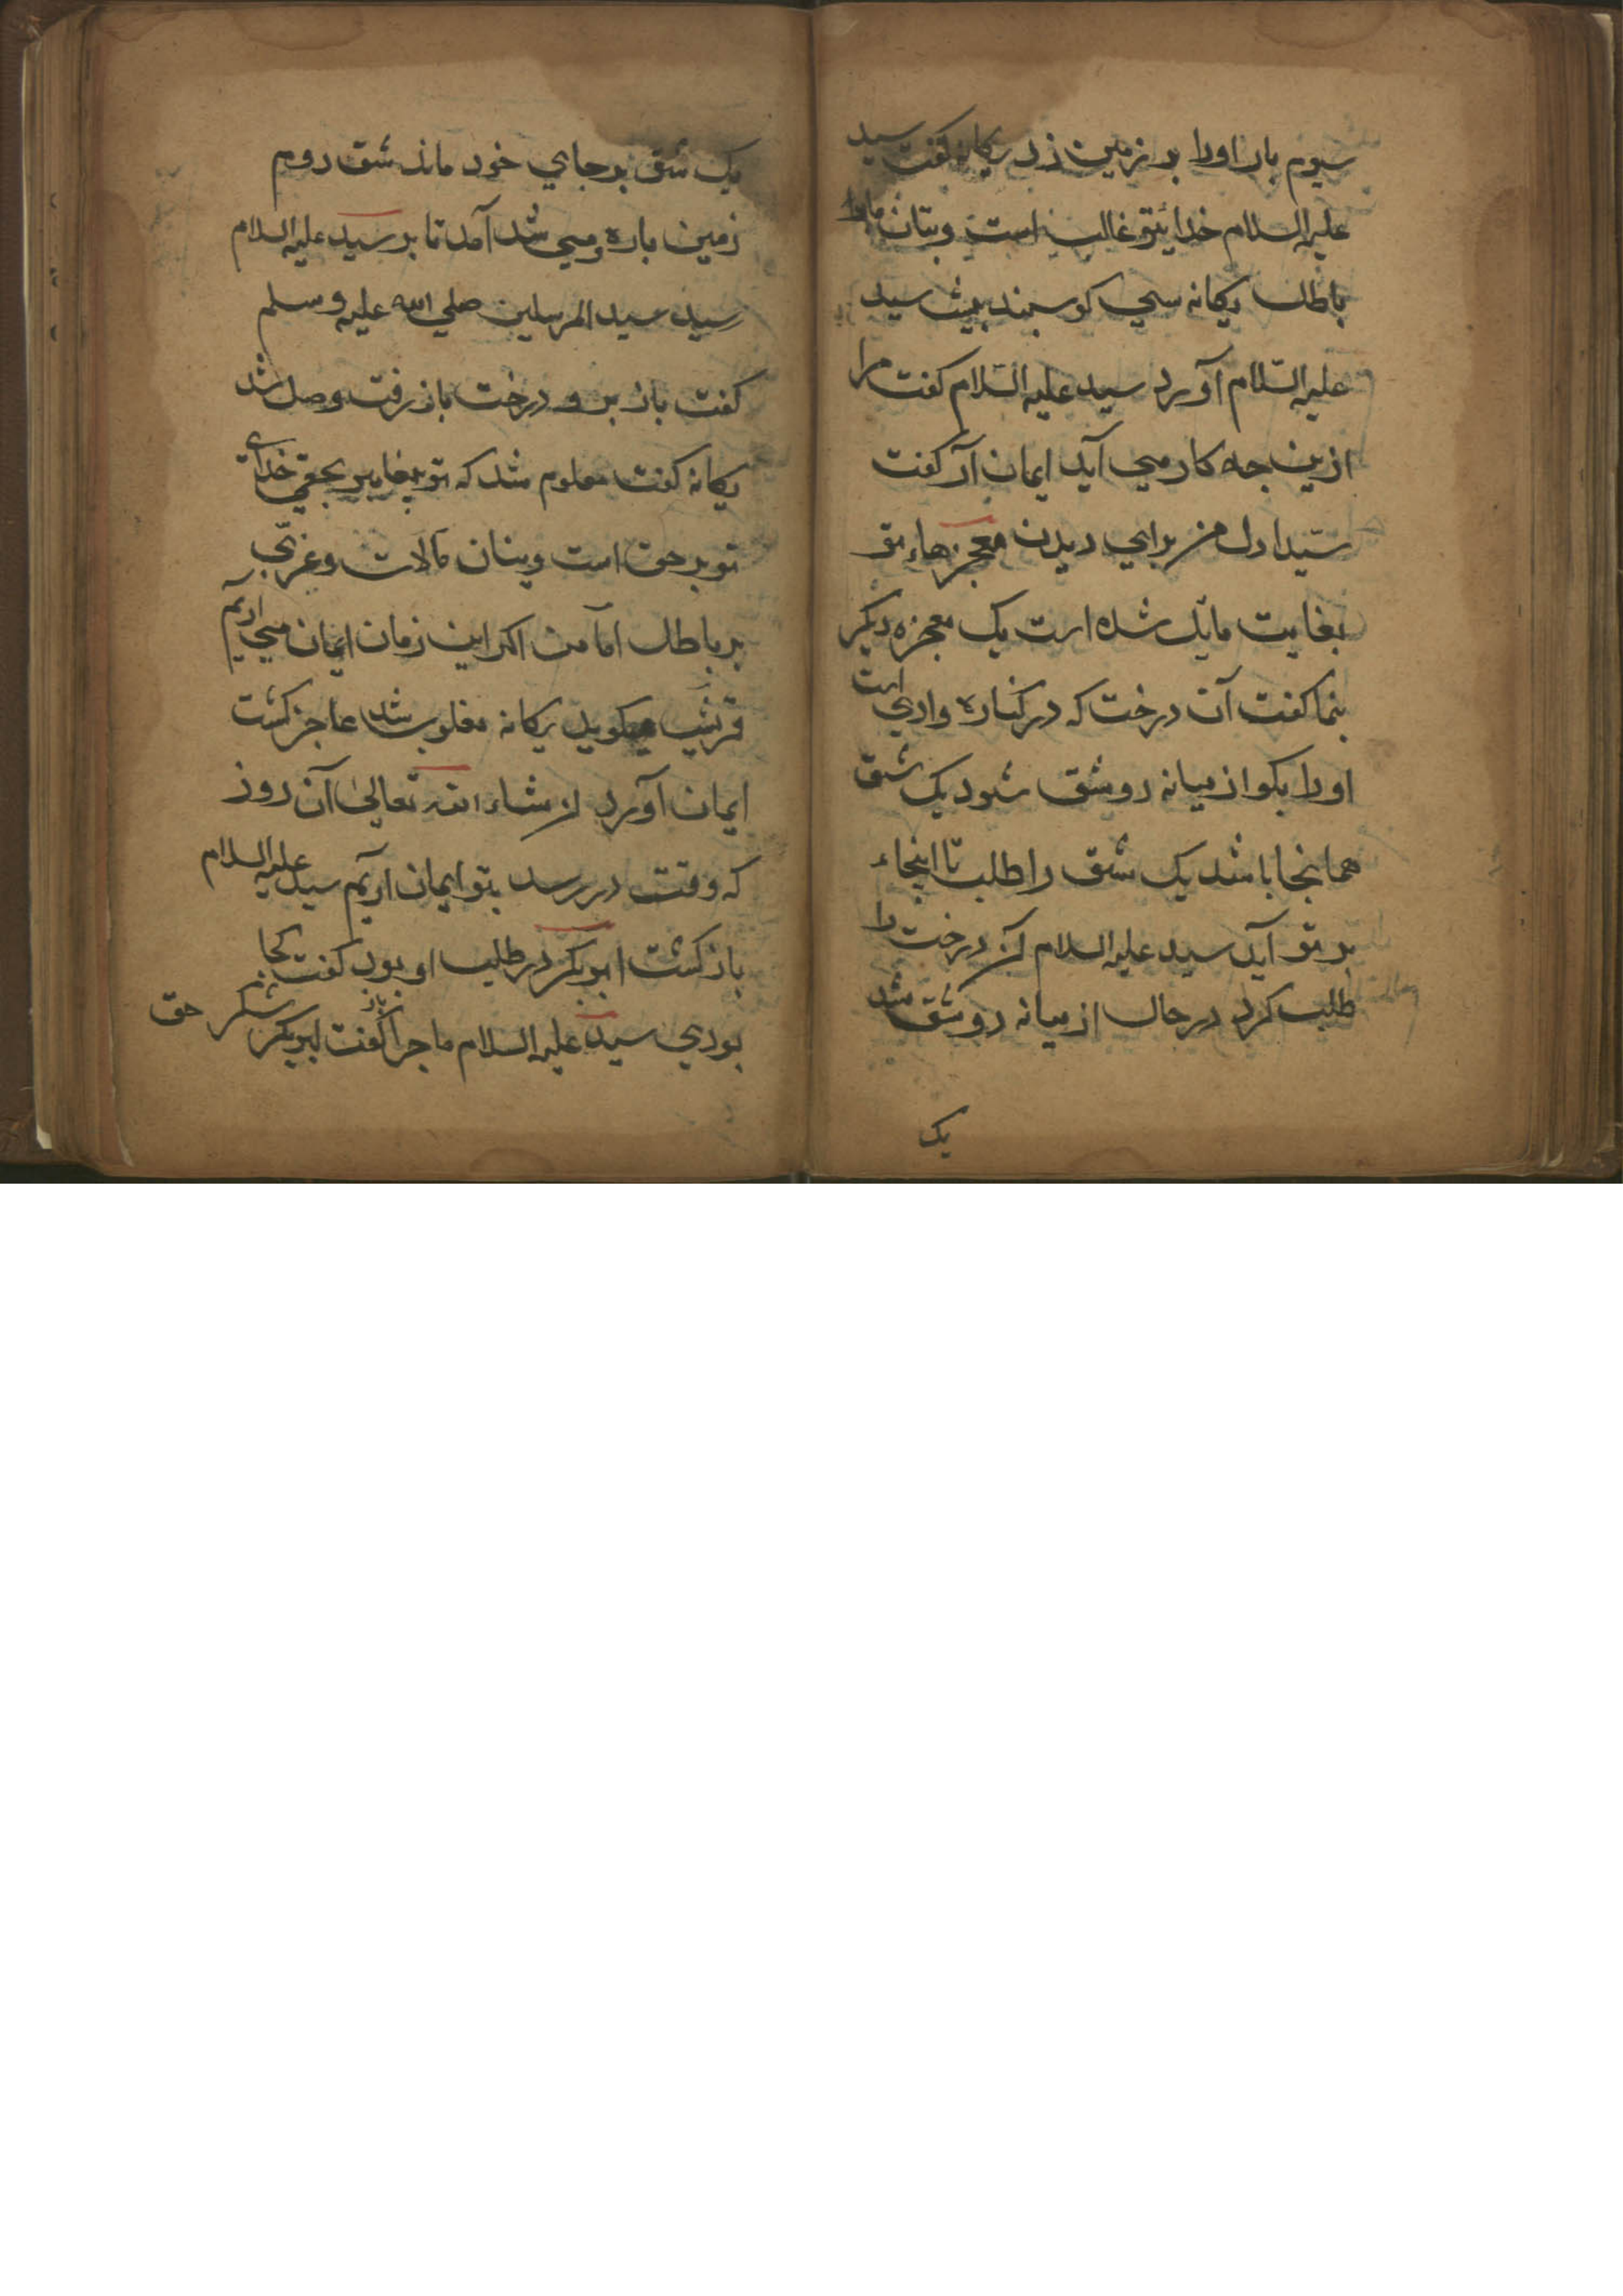 سیوم بار اورا بر زمین زد ریکانه کفت سید
علیه السلام خدایتو غالب است وبتان مارا
باطل ریکانه سی کوسبند بیش سید
علیه السّلام آورد سید علیه السّلام کفت مرا
ازین جه کار می آید ایمان آر کفت
سیّد ادل من برای دیدن معجزهاء تو
بغایت مایل شده است یک معجزه دیکر
بنما کفت آن درخت که در کناره وادی است
اورا بکو از میانه دوشق شود یک شق
همانجا باشد یک شق را طلب تا اینجاء
بر تو آید سید علیه السلام آن درخت را
طلب کرد در حال از میانه دوشق شد
یک
یک شق بر جای خود ماند شق دوم
زمین باره ومی شد آمد تا بر سید علیه السلام
رسید سید المرسلین صلی الله علیه وسلم
کفت باز برو درخت باز رفت وصل شد
ریکانه کفت معلوم شد که تو بیغامبر بحقی خدای
تو بر حق است وبتان ما لات وعزّی
بر باطل اما من اکر این زمان ایمان می آریم
قریش میکوید ریکانه مغلوب شد عاجز کشت
ایمان آورد ان شاء الله تعالی آن روز
که وقت در رسد بتو ایمان آریم سید علیه السلام
باز کشت ابوبکر در طلب او بود کفت کجا
بودی سید علیه السلام ماجرا باز کفت ابوبکر شکر حق